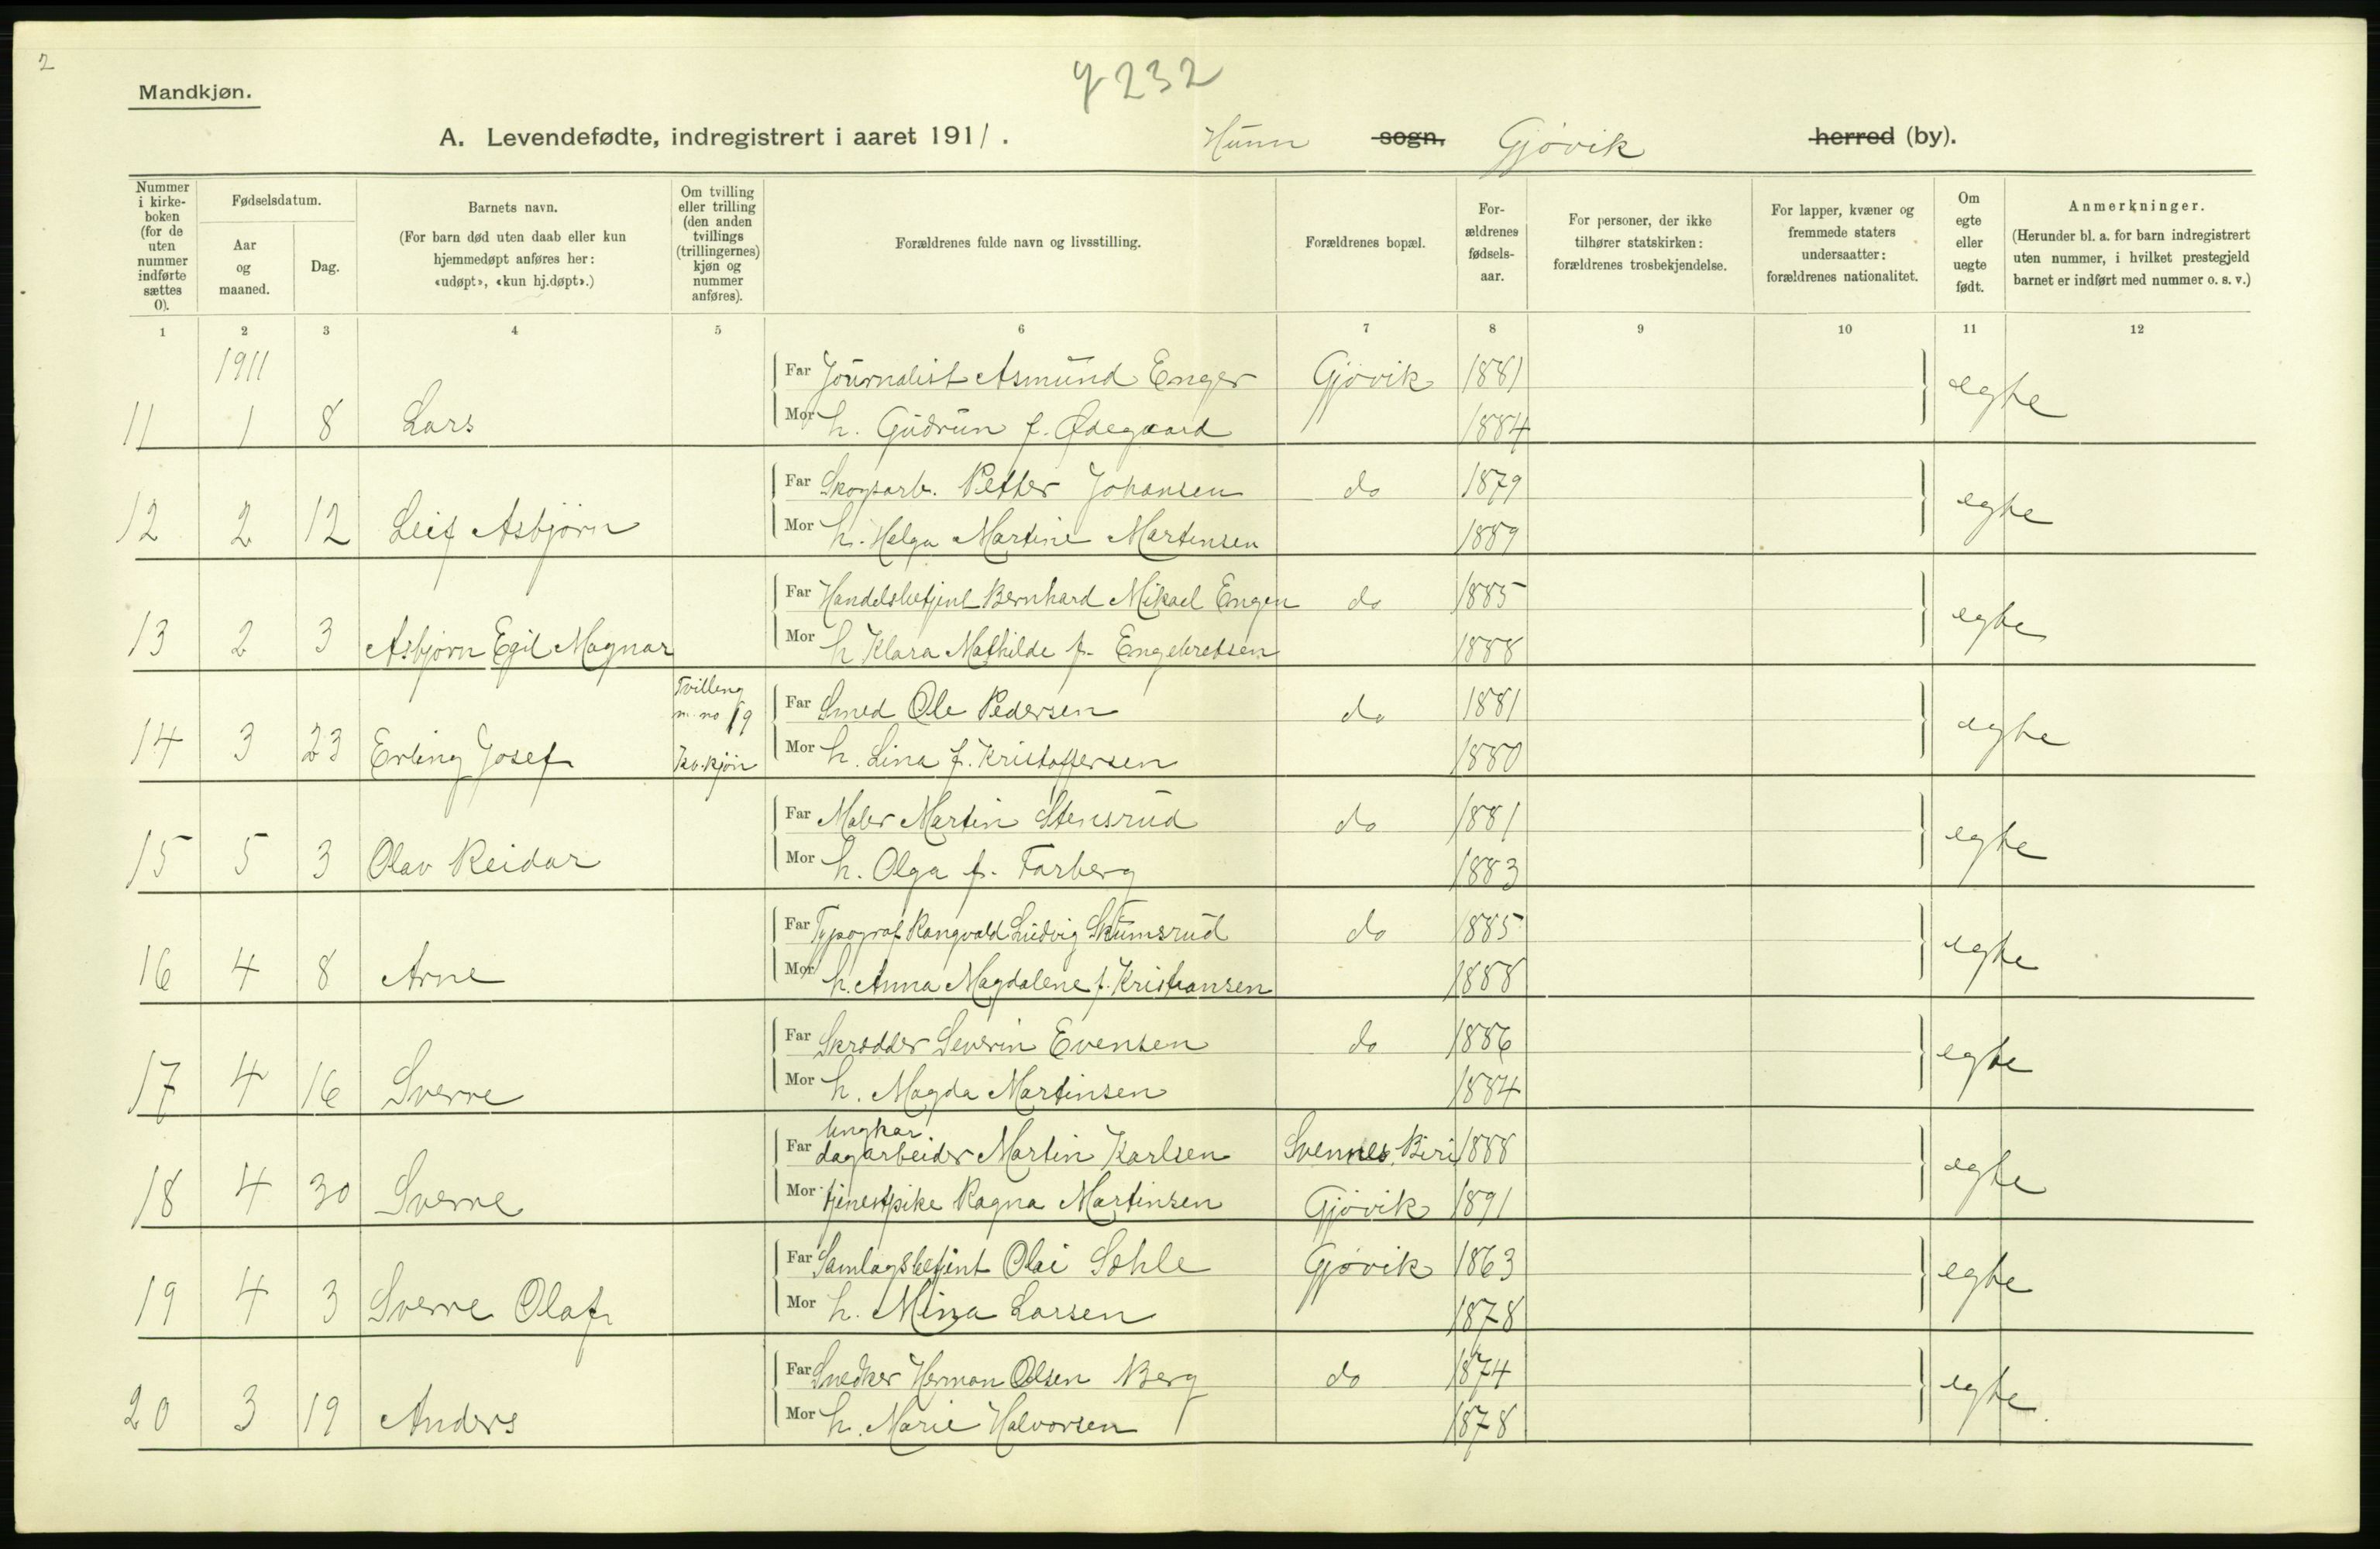 2
Mandkjøn.
4232
A. Levendefødte, indregistrert i aaret 1911. Hunn sogn, Gjøvik herred (by).
Nummer i kirkeboken (for de uten nummer indførte sættes 0).
Fødselsdatum.
Aar og maaned.
Dag.
Barnets navn.
(For barn død uten daab eller kun hjemmedøpt anføres her: «udøpt», «kun hj.døpt».)
Om tvilling eller trilling (den anden tvillings (trillingernes) kjøn og nummer anføres).
Forældrenes fulde navn og livsstilling.
Forældrenes bopæl.
Forældrenes fødselsaar.
For personer, der ikke tilhører statskirken: forældrenes trosbekjendelse.
For lapper, kvæner og fremmede staters undersaatter: forældrenes nationalitet.
Om egte eller uegte født.
Anmerkninger.
(Herunder bl. a. for barn indregistrert uten nummer, i hvilket prestegjeld barnet er indført med nummer o. s. v.)
1 2 3 4 5 6 7 8 9 10 11 12
1911
Far Journalist Asmund Enger Gjøvik 1881 egte
11 1 8 Lars Mor h. Gudrun f. Ødegaard 1884
Far Skogsarb. Petter Johansen do 1879 egte
12 2 12 Leif Asbjørn Mor h. Helga Martine Martinsen 1889
Far Handelsbetjent Bernhard Mikael Engen do 1885 egte
13 2 3 Asbjørn Egil Magnar Mor h Klara Mathilde f. Engebretsen 1888
Tvilling m. no 19 Kv.kjøn
Far Smed Ole Pedersen do 1881 egte
14 3 23 Erling Josef Mor h. Lina f. Kristoffersen 1880
Far Maler Martin Stensrud do 1881 egte
15 5 3 Olav Reidar Mor h. Olga f. Farberg 1883
Far Typograf Rangvald Ludvig Skumsrud do 1885 egte
16 4 8 Arne Mor h. Anna Magdalene f. Kristiansen 1888
Far Skrædder Severin Evensen do 1886 egte
17 4 16 Sverre Mor h. Magda Martinsen 1884
Ungkar.
Far dagarbeider Martin Karlsen Svennes, Biri 1888 egte
18 4 30 Sverre Mor tjenestpike Ragna Martinsen Gjøvik 1891
Far Samlagsbetjent Olai Søhle Gjøvik 1863 egte
19 4 3 Sverre Olaf Mor h. Mina Larsen 1878
Far Snedker Herman Olsen Berg do 1874 egte
20 3 19 Anders Mor h. Marie Halvorsen 1878